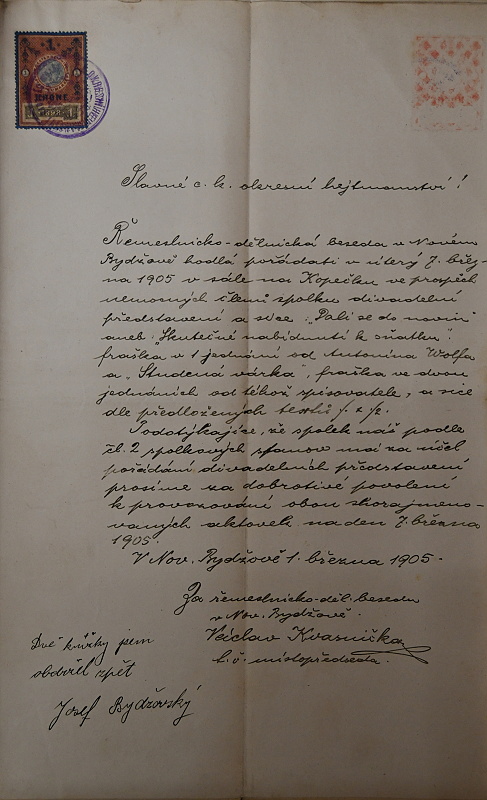 1
KRONE
1898
Slavné c. k. okresní hejtmanství!
Řemeslnicko-dělnická beseda v Novém
Bydžově hodlá pořádati v úterý 7. břez-
na 1905 v sále na Kopečku ve prospěch
nemocných členů spolku divadelní
představení a sice: „Dali se do novin"
aneb: „Skutečné nabídnutí k sňatku",
fraška v 1 jednání od Antonína Wolfa
a „Studená várka", fraška ve dvou
jednáních od téhož spisovatele, a sice
dle předložených textů
Podotýkajíce, že spolek náš podle
čl. 2 spolkových stanov má za účel
pořádání divadelních představení
prosíme za dobrotivé povolení
k provozování obou shora jmeno-
vaných aktovek na den 7. března
1905.
V Nov. Bydžově 1. března 1905.
Za řemeslnicko-děl. besedu
v Nov. Bydžově.
Václav Kvasnička
t. č. místopředseda.
Dvě knížky jsem
obdržel zpět
Josef Bydžovský